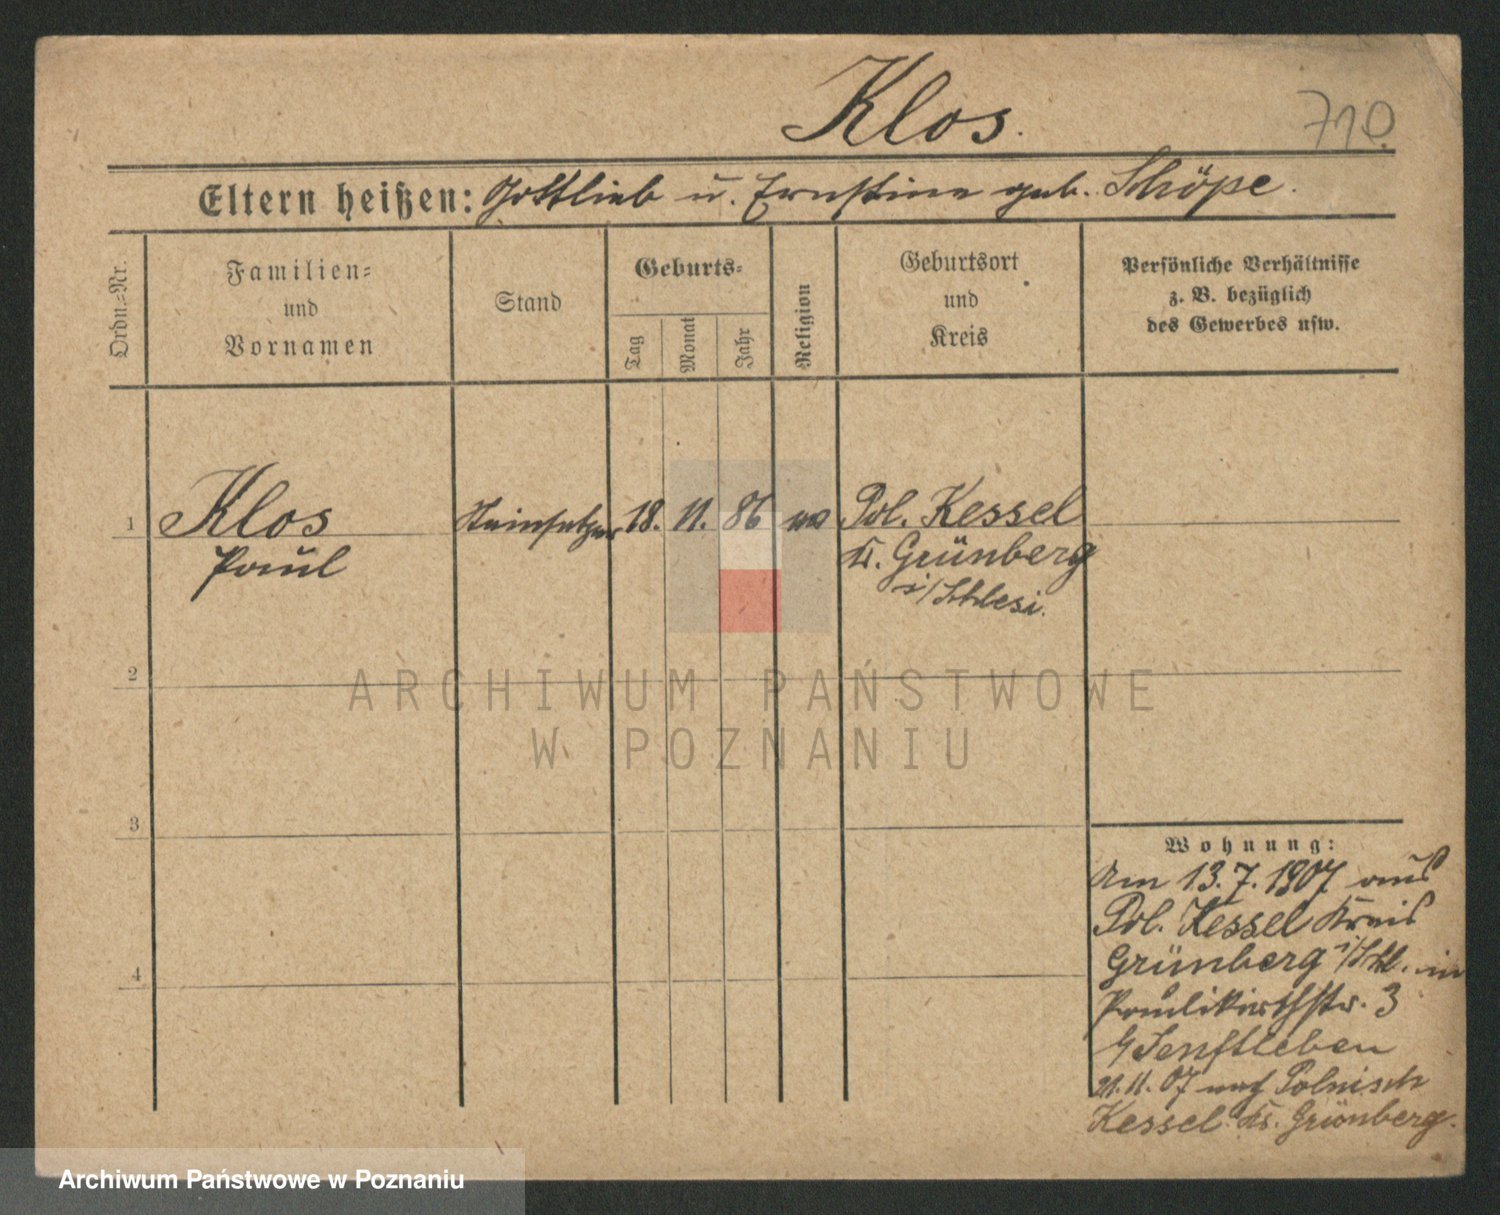 Klos.
710.
Eltern heißen: Gottlieb u. Ernstine geb. Schöpe.
Ordn.-Nr.
Familien-
und
Vornamen
Stand
Geburts-
Tag
Monat
Jahr
Religion
Geburtsort
und
Kreis
Persönliche Verhältnisse
z. B. bezüglich
des Gewerbes usw.
1
Klos
Paul
Steinsetzer
18.
11.
86
Pol. Kessel
Kr. Grünberg
i/Schlesi.
2
3
4
Wohnung:
Am 13.7.1907 aus
Pol. Kessel Kreis
Grünberg i/Schl. in
Paulikirchstr. 3
b/Senftleben
21.11.07 nach Polnisch
Kessel Kr. Grünberg.
ARCHIWUM PAŃSTWOWE
W POZNANIU
Archiwum Państwowe w Poznaniu